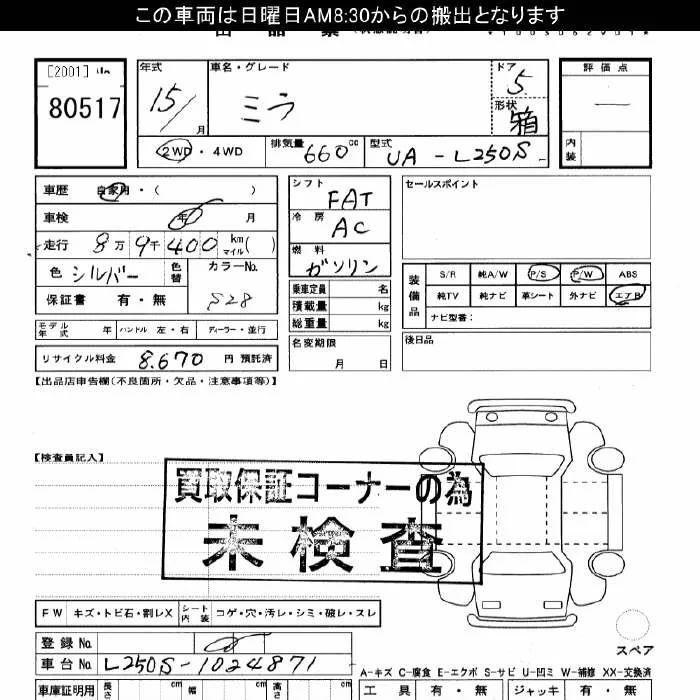 この車両は日曜日AM8:30からの搬出となります
[2001]
80517
年式
15/
月
車名・グレード
ミラ
ドア
5
形状
箱
評価点
―
内装
2WD・4WD
排気量 660 cc
型式 UA-L250S
車歴 自家用・( )
車検 年 月
走行 8万9千400 km マイル( )
色 シルバー 色替
カラーNo. S28
保証書 有・無
シフト FAT
冷房 AC
燃料 ガソリン
乗車定員 名
積載量 kg
総重量 kg
セールスポイント
装備品
S/R 純A/W P/S P/W ABS
純TV 純ナビ 革シート 外ナビ エアB
ナビ型番:
モデル年式 年 ハンドル 左・右 ディーラー・並行
リサイクル料金 8,670 円 預託済
名変期限 月 日
後日品
【出品店申告欄(不良箇所・欠品・注意事項等)】
【検査員記入】
買取保証コーナーの為
未検査
FW キズ・トビ石・割レX シート内装 コゲ・穴・汚レ・シミ・破レ・スレ
登録No.
車台No. L250S-1024871
スペア
A-キズ C-腐食 E-エクボ S-サビ U-凹ミ W-補修 XX-交換済
車庫証明用 長さ cm 幅 cm 高さ cm
工具 有・無 ジャッキ 有・無